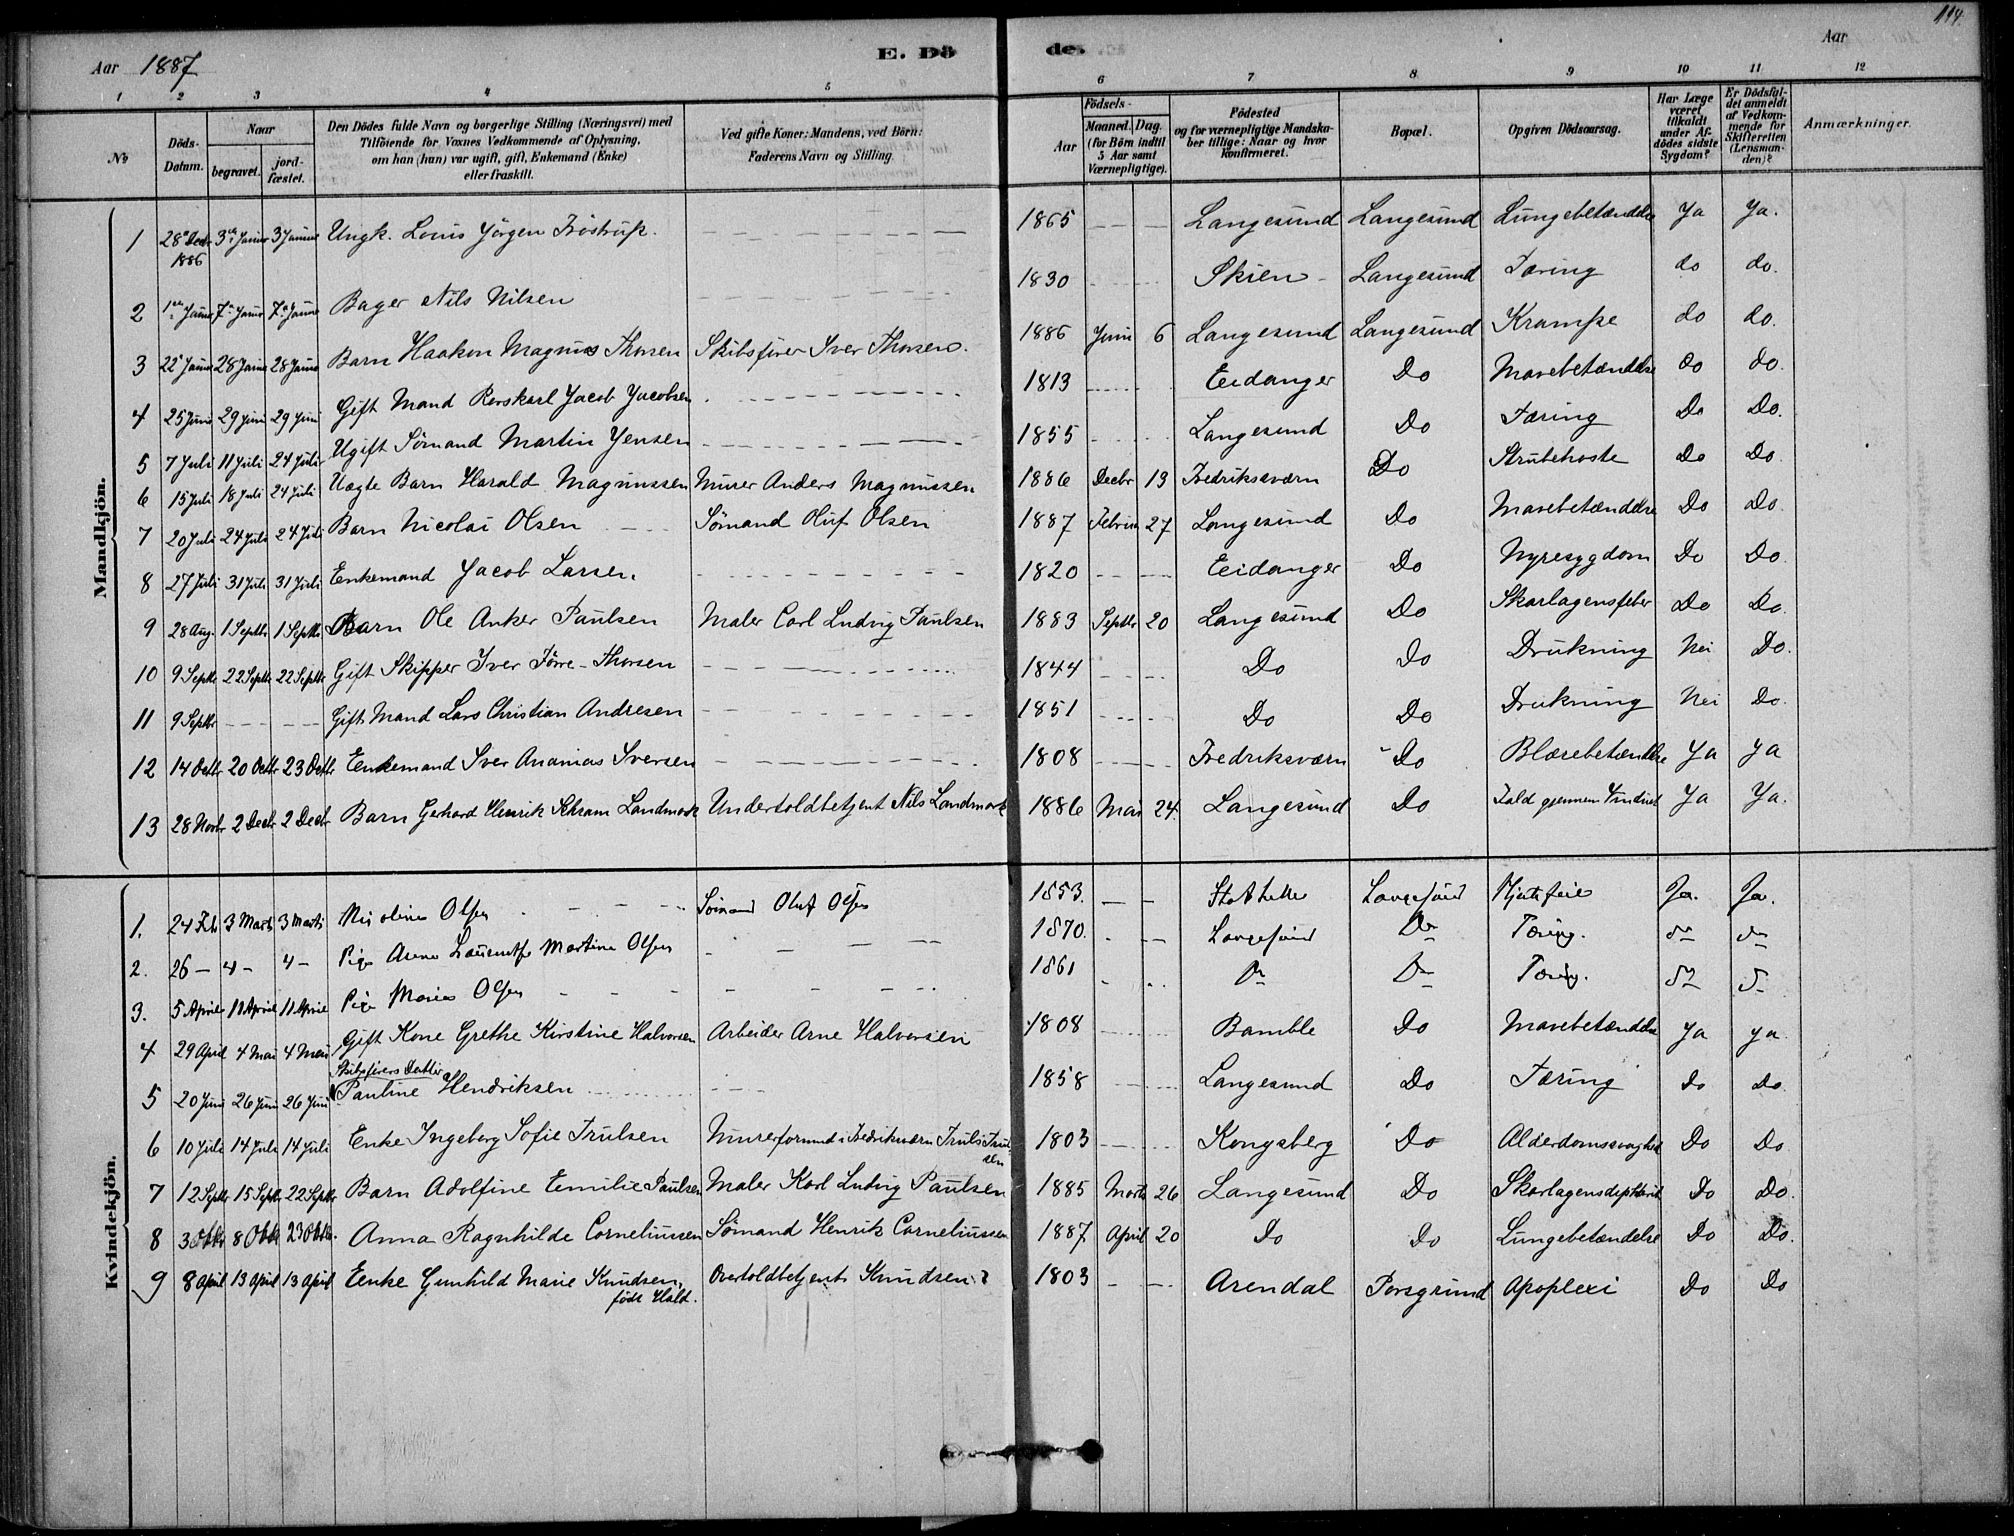 114.
Aar 1887 E. Dö de. Aar
1 2 3 4 5 6 7 8 9 10 11 12
No Döds-Datum. Naar begravet. jordfæstet. Den Dödes fulde Navn og borgerlige Stilling (Næringsvei) med Tilföiende for Voxnes Vedkommende af Oplysning, om han (hun) var ugift, gift, Enkemand (Enke) eller fraskilt. Ved gifte Koner: Mandens, ved Börn: Faderens Navn og Stilling. Födsels- Aar Maaned. Dag. (for Börn indtil 5 Aar samt Værnepligtige). Födested og for værnepligtige Mandskaber tillige: Naar og hvor konfirmeret. Bopæl. Opgiven Dödsaarsag. Har Læge været tilkaldt under Afdödes sidste Sygdom? Er Dödsfaldet anmeldt af Vedkommende for Skifteretten (Lensmanden)? Anmærkninger.
Mandkjön.
1 28 Decbr 1886 3die Januar 3 Januar Ungk. Louis Jörgen Tröstrup. 1865 Langesund Langesund Lungebetændelse Ja Ja.
2 1ste Januar 7de Januar 7de Januar Bager Nils Nilsen 1830 Skien Langesund Tæring do do.
3 22 Januar 28 Januar 28 Januar Barn Haakon Magnus Thorsen Skibsfører Iver Thorsen. 1886 Juni 6 Langesund Langesund Krampe do do.
4 25 Juni 29 Juni 29 Juni Gift Mand Rorskarl Jacob Jacobsen 1813 Eidanger Do Mavebetændelse do do.
5 7 Juli 11 Juli 24 Juli Ugift Sömand Martin Jensen 1855 Langesund Do Tæring Do Do.
6 15 Juli 18 Juli 24 Juli Uægte Barn Harald Magnussen Murer Anders Magnussen 1886 Decbr 13 Fredriksværn Do Strubehoste Do Do
7 20 Juli 24 Juli 24 Juli Barn Nicolai Olsen Sömand Oluf Olsen 1887 Februar 27 Langesund Do Mavebetændelse Do Do.
8 27 Juli 31 Juli 31 Juli Enkemand Jacob Larsen. 1820 Eidanger Do Nyresygdom Do Do.
9 28 Aug. 1 Septbr 1 Septbr Barn Ole Anker Paulsen Maler Carl Ludvig Paulsen 1883 Septbr 20 Langesund Do Skarlagensfeber Do Do.
10 9 Septbr 22 Septbr 22 Septbr Gift Skipper Iver Törre-Thorsen 1844 Do Do Drukning Nei Do.
11 9 Septbr Gift Mand Lars Christian Andresen 1851 Do Do Drukning Nei Do.
12 14 Octbr 20 Octbr 23 Octbr Enkemand Iver Ananias Iversen 1808 Fredriksværn Do Blærebetændelse Ja Ja
13 28 Novbr 2 Decbr 2 Decbr Barn Gerhard Henrik Schram Landmark Undertoldbetjent Nils Landmark 1886 Mai 24. Langesund Do Fald gjennem Vinduet Ja Ja.
Kvindekjön.
1. 24 Feb 3 Marts 3 Marts Nicoline Olsen Sömand Oluf Olsen 1853. Stathelle Langesund Hjertefeil Ja. Ja.
2. 26 – 4 – 4 – Pige Anna Martine Olsen 1870. Langesund Do Tæring. do do
3. 5 April 11 April 11 April Pige Maria Olsen 1861 Do Do Tæring. do do
4 29 April 4 Mai 4 Mai Gift Kone Grethe Kirstine Halvorsen Arbeider Arne Halvorsen 1808 Bamble Do Mavebetændelse Ja Ja
5 20 Juni 26 Juni 26 Juni Skibsförers Datter Pauline Hendriksen 1858 Langesund Do Tæring do do.
6 10 Juli 14 Juli 14 Juli Enke Ingeborg Sofie Trulsen Murerformand i Fredriksværn Truls Trulsen 1803 Kongsberg Do Alderdomssvaghed Do Do
7 12 Septbr 15 Septbr 22 Septbr Barn Adolfine Emilie Paulsen Maler Karl Ludvig Paulsen 1885 Marts 26 Langesund Do Skarlagensdiphterit Do Do.
8 3 Oktbr 8 Oktbr 23 Oktbr. Anna Ragnhilde Corneliussen Sömand Henrik Corneliussen 1887 April 20 Do Do Lungebetændelse Do Do.
9 8 April 13 April 13 April Enke Gunhild Marie Knudsen, födt Hald. Overtoldbetjent Knudsen 1803 Arendal Porsgrund Apoplexi Do Do